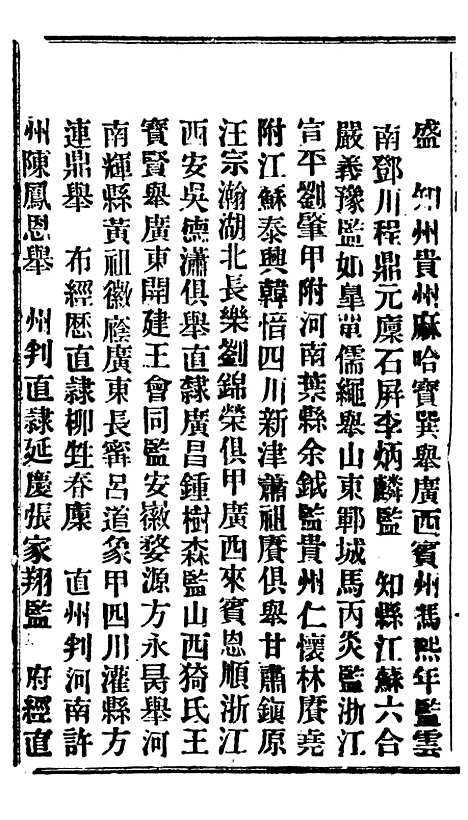 盛　知州貴州麻哈寶巽舉廣西賓州馮熙年監雲
南鄧川程鼎元廩石屏李炳麟監　知縣江蘇六合
嚴義豫監如臯當儒繩舉山東鄆城馬丙炎監浙江
宣平劉肇甲附河南葉縣余鉞監貴州仁懷林賡堯
附江蘇泰興韓愔四川新津蕭祖賡俱舉甘肅鎭原
汪宗瀚湖北長樂劉錦榮俱甲廣西來賓恩順浙江
西安吳德瀟俱舉直隸廣昌鍾樹森監山西猗氏王
寶賢舉廣東開建王會同監安徽婺源方永昺舉河
南輝縣黃祖徽廕廣東長寗呂道象甲四川灌縣方
連鼎舉　布經歷直隸柳甡春廩　直州判河南許
州陳鳳恩舉　州判直隸延慶張家翔監　府經直